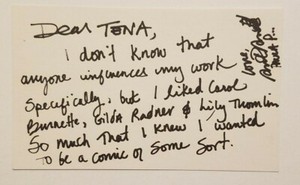 Dear TENA,
I don't know that
anyone influences my work
specifically, but I liked Carol
Burnette, Gilda Radner & Lily Thomlin
so much that I knew I wanted
to be a comic of some sort.
Love,